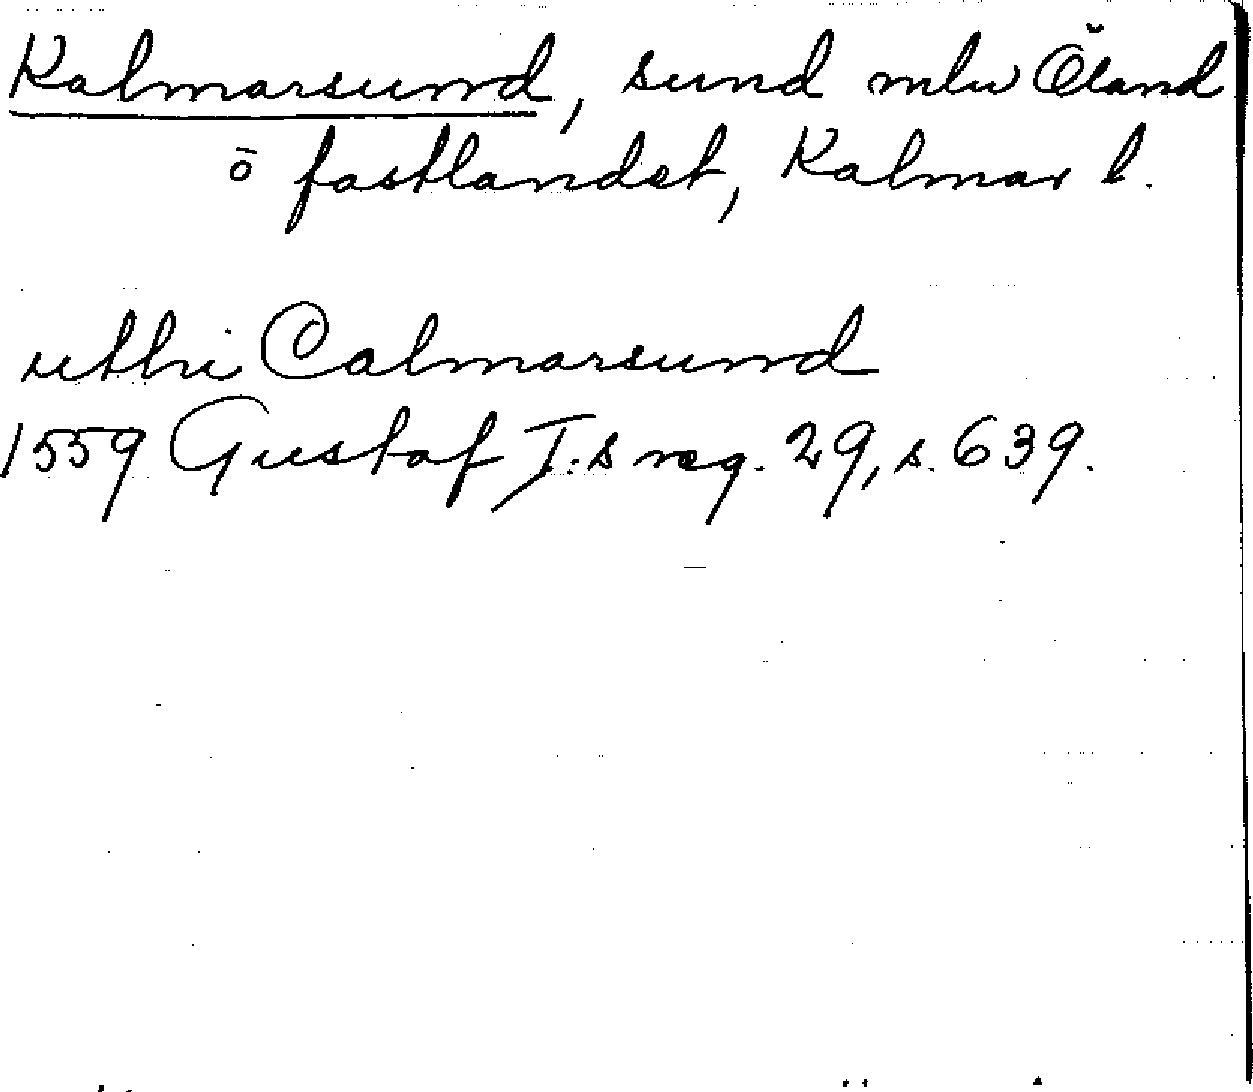 Kalmarsund, sund mlw Öland
ō fastlandet, Kalmar l.
utthi Calmarsund
1559 Gustaf I.s reg. 29, s. 639.